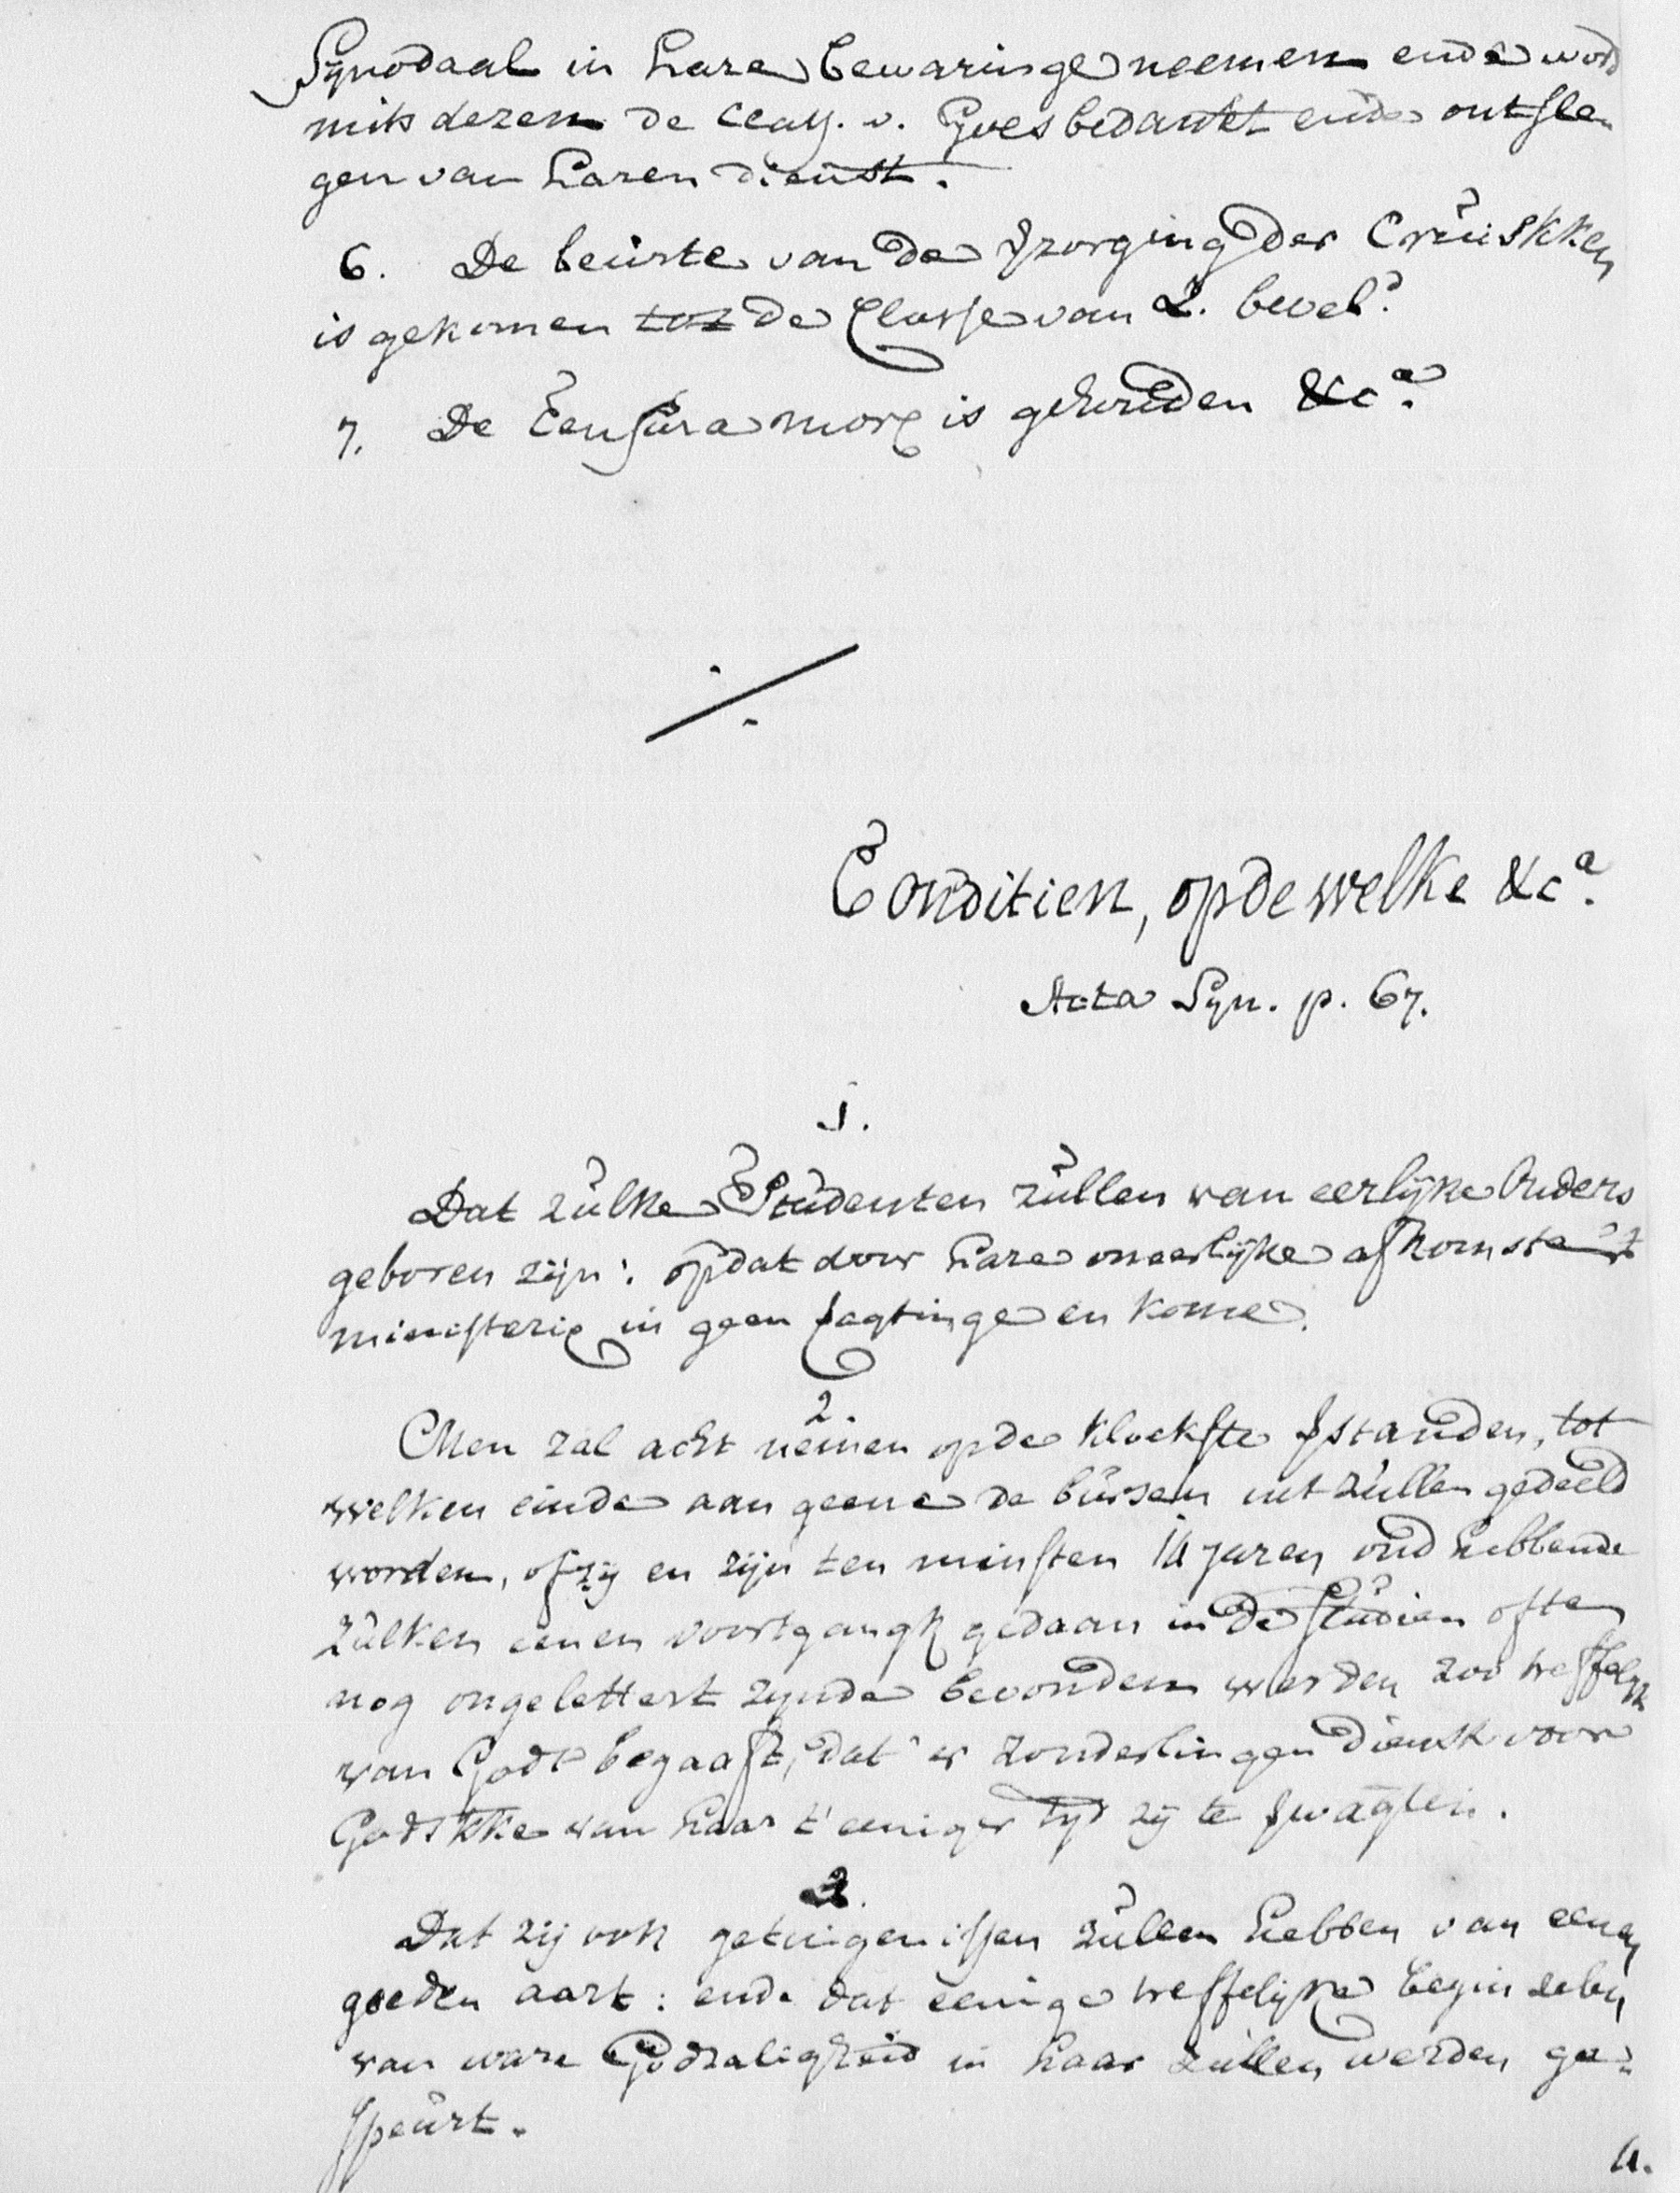 Synodaal in hare bewaringe neemen ende word
mits dezen de Class. v. Goes bedankt ende ontsla-
gen van haren dienst.
6. De beurte van de Vzorging der Cruiskken
is gekomen tot de Classe van Z. bevel.
7. De Censura morū is gehouden &cᵃ.
Conditien, op de welke &cᵃ.
Acta Syn. p. 67.
1.
Dat zulke Studenten zullen van eerlyke Ouders
geboren zijn: opdat door hare oneerlijke afkomste 't
ministerie in geen lagtinge en kome.
2.
Men zal acht neemen op de kloekste Vstanden, tot
welken einde aan geene de bursen uitzullen gedeeld
worden, of zij en zijn ten minsten 14 jaren oud hebbende
zulken eenen voortgangk gedaan in de studien ofte
nog ongelettert zynde bevonden werden zoo treffelyk
van Godt begaaft, dat 'er zonderlingen dienst voor
Gods kke van haar t' eeniger tyd zij te Vwagten.
3.
Dat zij ook getuigenissen zullen hebben van eenen
goeden aart: ende dat eenige treffelyke beginselen
van ware Godzaligheid in haar zullen werden ge-
speurt.
4.